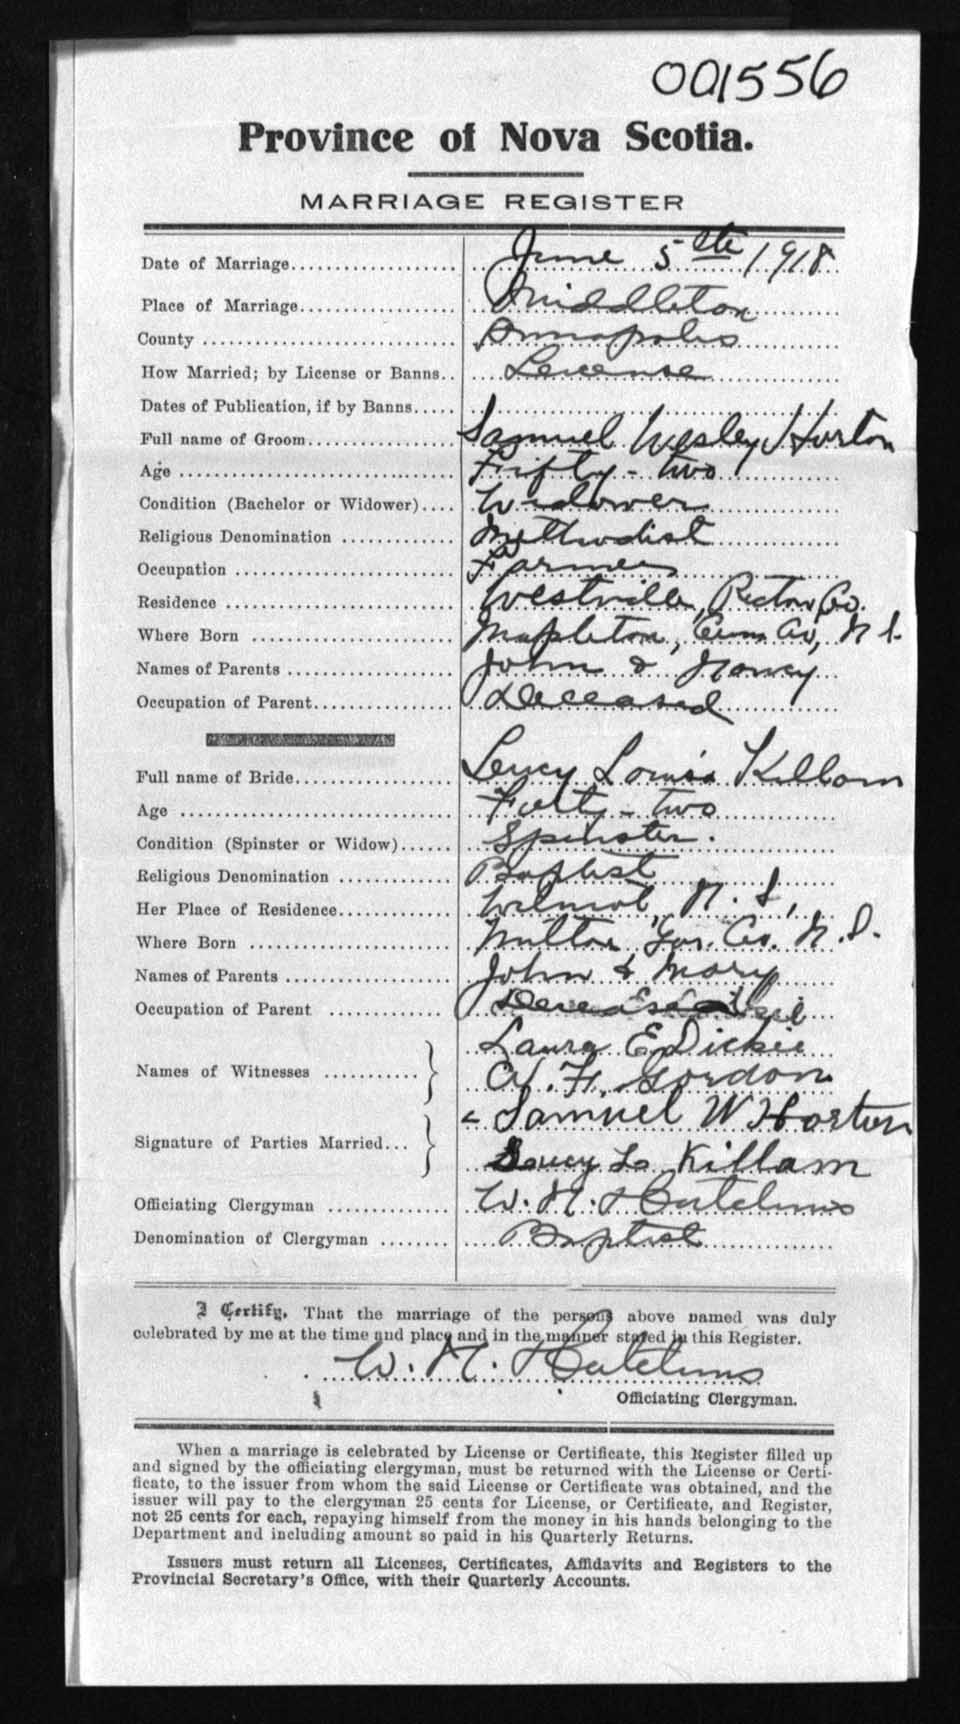 001556
Province of Nova Scotia.
MARRIAGE REGISTER
Date of Marriage June 5th 1918
Place of Marriage Middleton
County Annapolis
How Married; by License or Banns License
Dates of Publication, if by Banns
Full name of Groom Samuel Wesley Horton
Age Fifty-two
Condition (Bachelor or Widower) Widower
Religious Denomination Methodist
Occupation Farmer
Residence Westville, Pictou Co.
Where Born Mapleton, Cum. Co, N S.
Names of Parents John & Nancy
Occupation of Parent Deceased
Full name of Bride Lucy Louisa Killam
Age Forty-two
Condition (Spinster or Widow) Spinster.
Religious Denomination Baptist
Her Place of Residence Wilmot, N. S,
Where Born Milton Yar. Co. N. S.
Names of Parents John & Mary
Occupation of Parent Deceased
Names of Witnesses Laura E Dickie
H. Gordon
Signature of Parties Married Samuel W Horton
Lucy L. Killam
Officiating Clergyman W. N. Hutchins
Denomination of Clergyman Baptist
I Certify, That the marriage of the persons above named was duly
celebrated by me at the time and place and in the manner stated in this Register.
W. N. Hutchins
Officiating Clergyman.
When a marriage is celebrated by License or Certificate, this Register filled up
and signed by the officiating clergyman, must be returned with the License or Certi-
ficate, to the issuer from whom the said License or Certificate was obtained, and the
issuer will pay to the clergyman 25 cents for License, or Certificate, and Register,
not 25 cents for each, repaying himself from the money in his hands belonging to the
Department and including amount so paid in his Quarterly Returns.
Issuers must return all Licenses, Certificates, Affidavits and Registers to the
Provincial Secretary's Office, with their Quarterly Accounts.